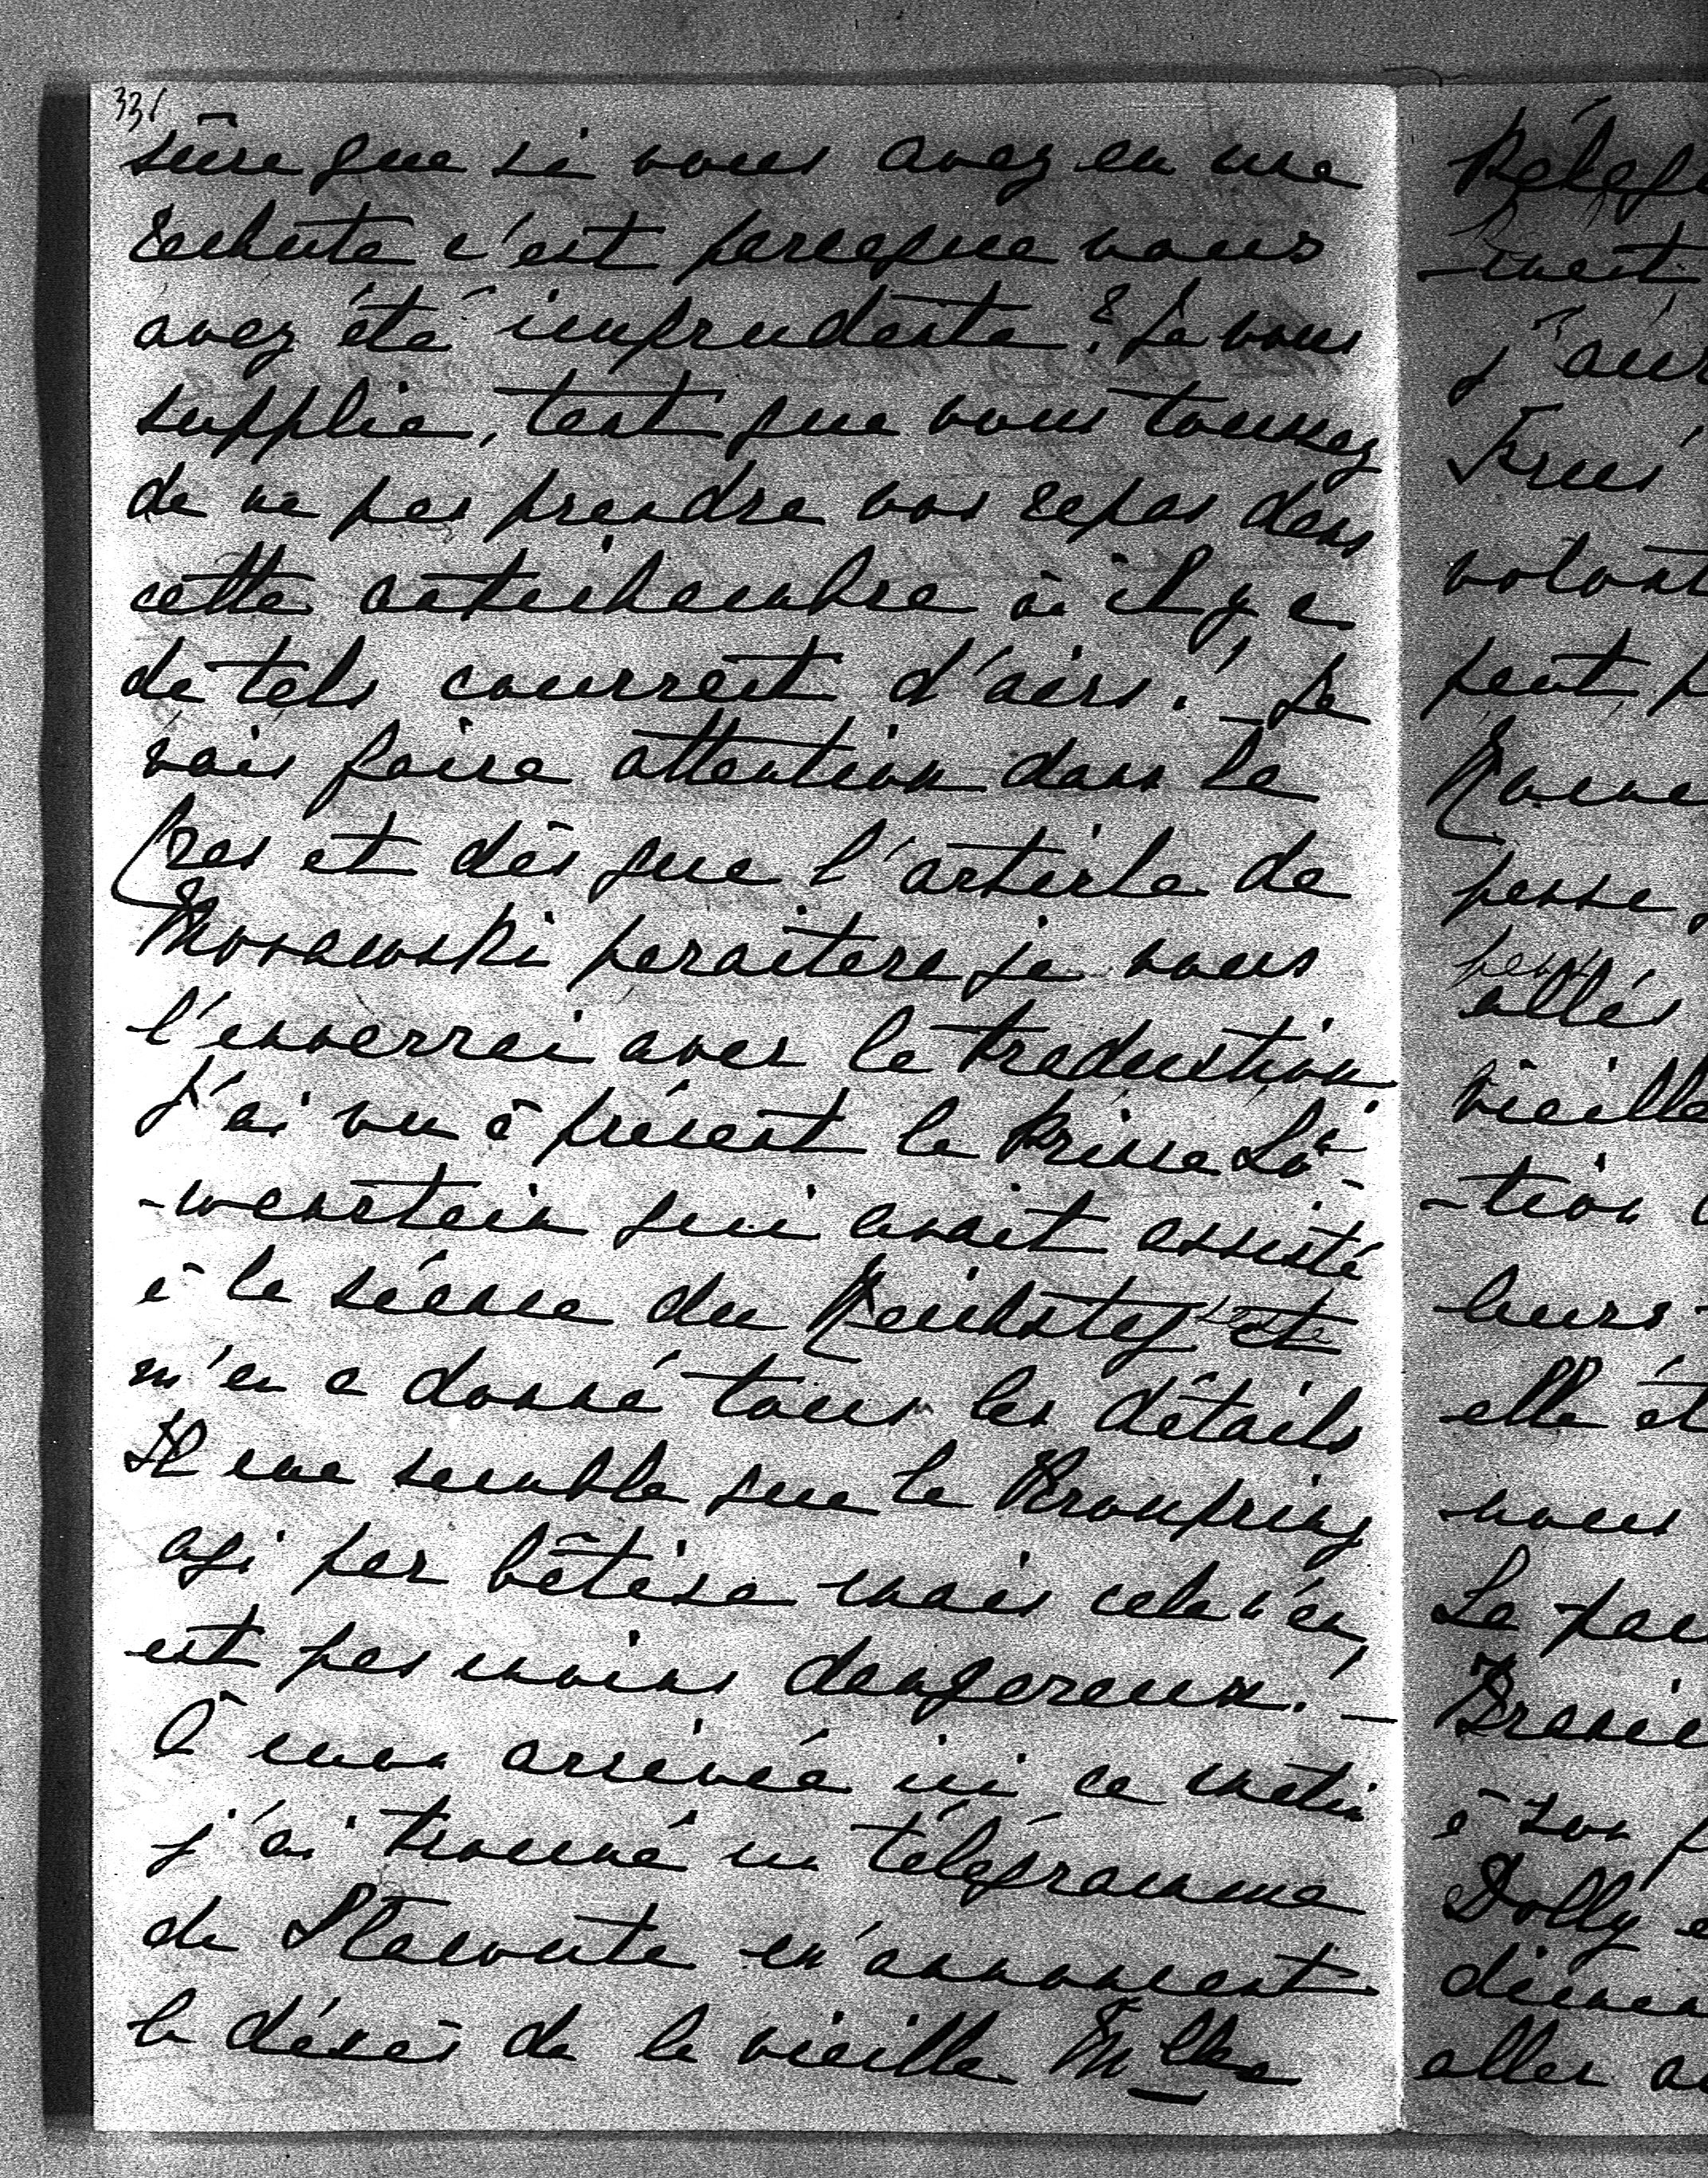 331
sûre que si vous avez eu une
rechute c'est parceque vous
avez été imprudente? Je vous
supplie, tant que vous toussez
de ne pas prendre vos repas dans
cette antichambre où il y a
de tels courrent d'airs! Je
vais faire attention dans le
Czas et dès que l'article de
Morawski peraitera je vous
l'enverrai avec la traduction.
J'ai vu à présent le Prince Lö-
-wenstein qui avait assisté
à la séance du Reichstag et
m'en a donné tous les détails
Il me semble que le Kronprinz
agi par bêtise mais cela n'en
est pas moins dangereux! —
À mon arrivée ici ce matin
j'ai trouvé un télégramme
de Stawouta m'annonçant
le décès de la vieille Mlle
-ment
j'aur
volont
peut p
pense
allés
vieille
-tion
leurs
elle ét
nous
La pau
à son p
Dolly e
aller au